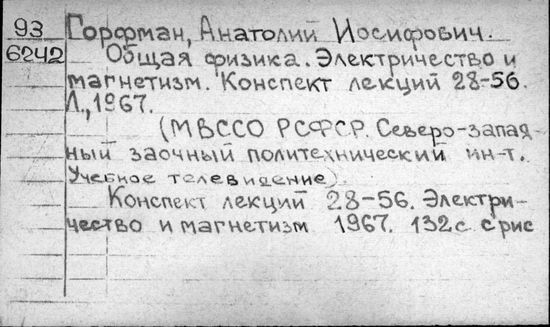 93 Горфман, Анатолий Иосифович.
6242 Общая физика. Электричество и
магнетизм. Конспект лекций 28-56.
Л., 1967.
(МВССО РСФСР. Северо-запад-
ный заочный политехнический ин-т.
Учебное телевидение).
Конспект лекций 28-56. Электри-
чество и магнетизм 1967. 132с с рис